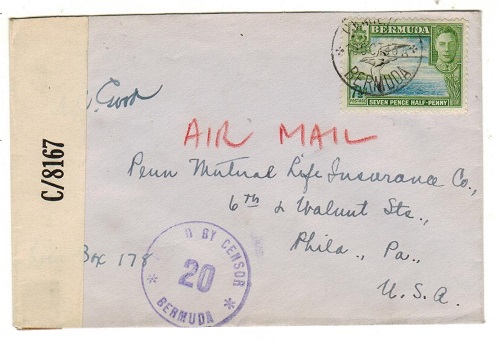 BERMUDA
BERMUDA
7½
SEVEN PENCE HALF-PENNY
C/8167
AIR MAIL
Penn Mutual Life Insurance Co.,
6th & Walnut Sts.,
Phila., Pa.,
U.S.A.
Box 178
BY CENSOR
20
BERMUDA